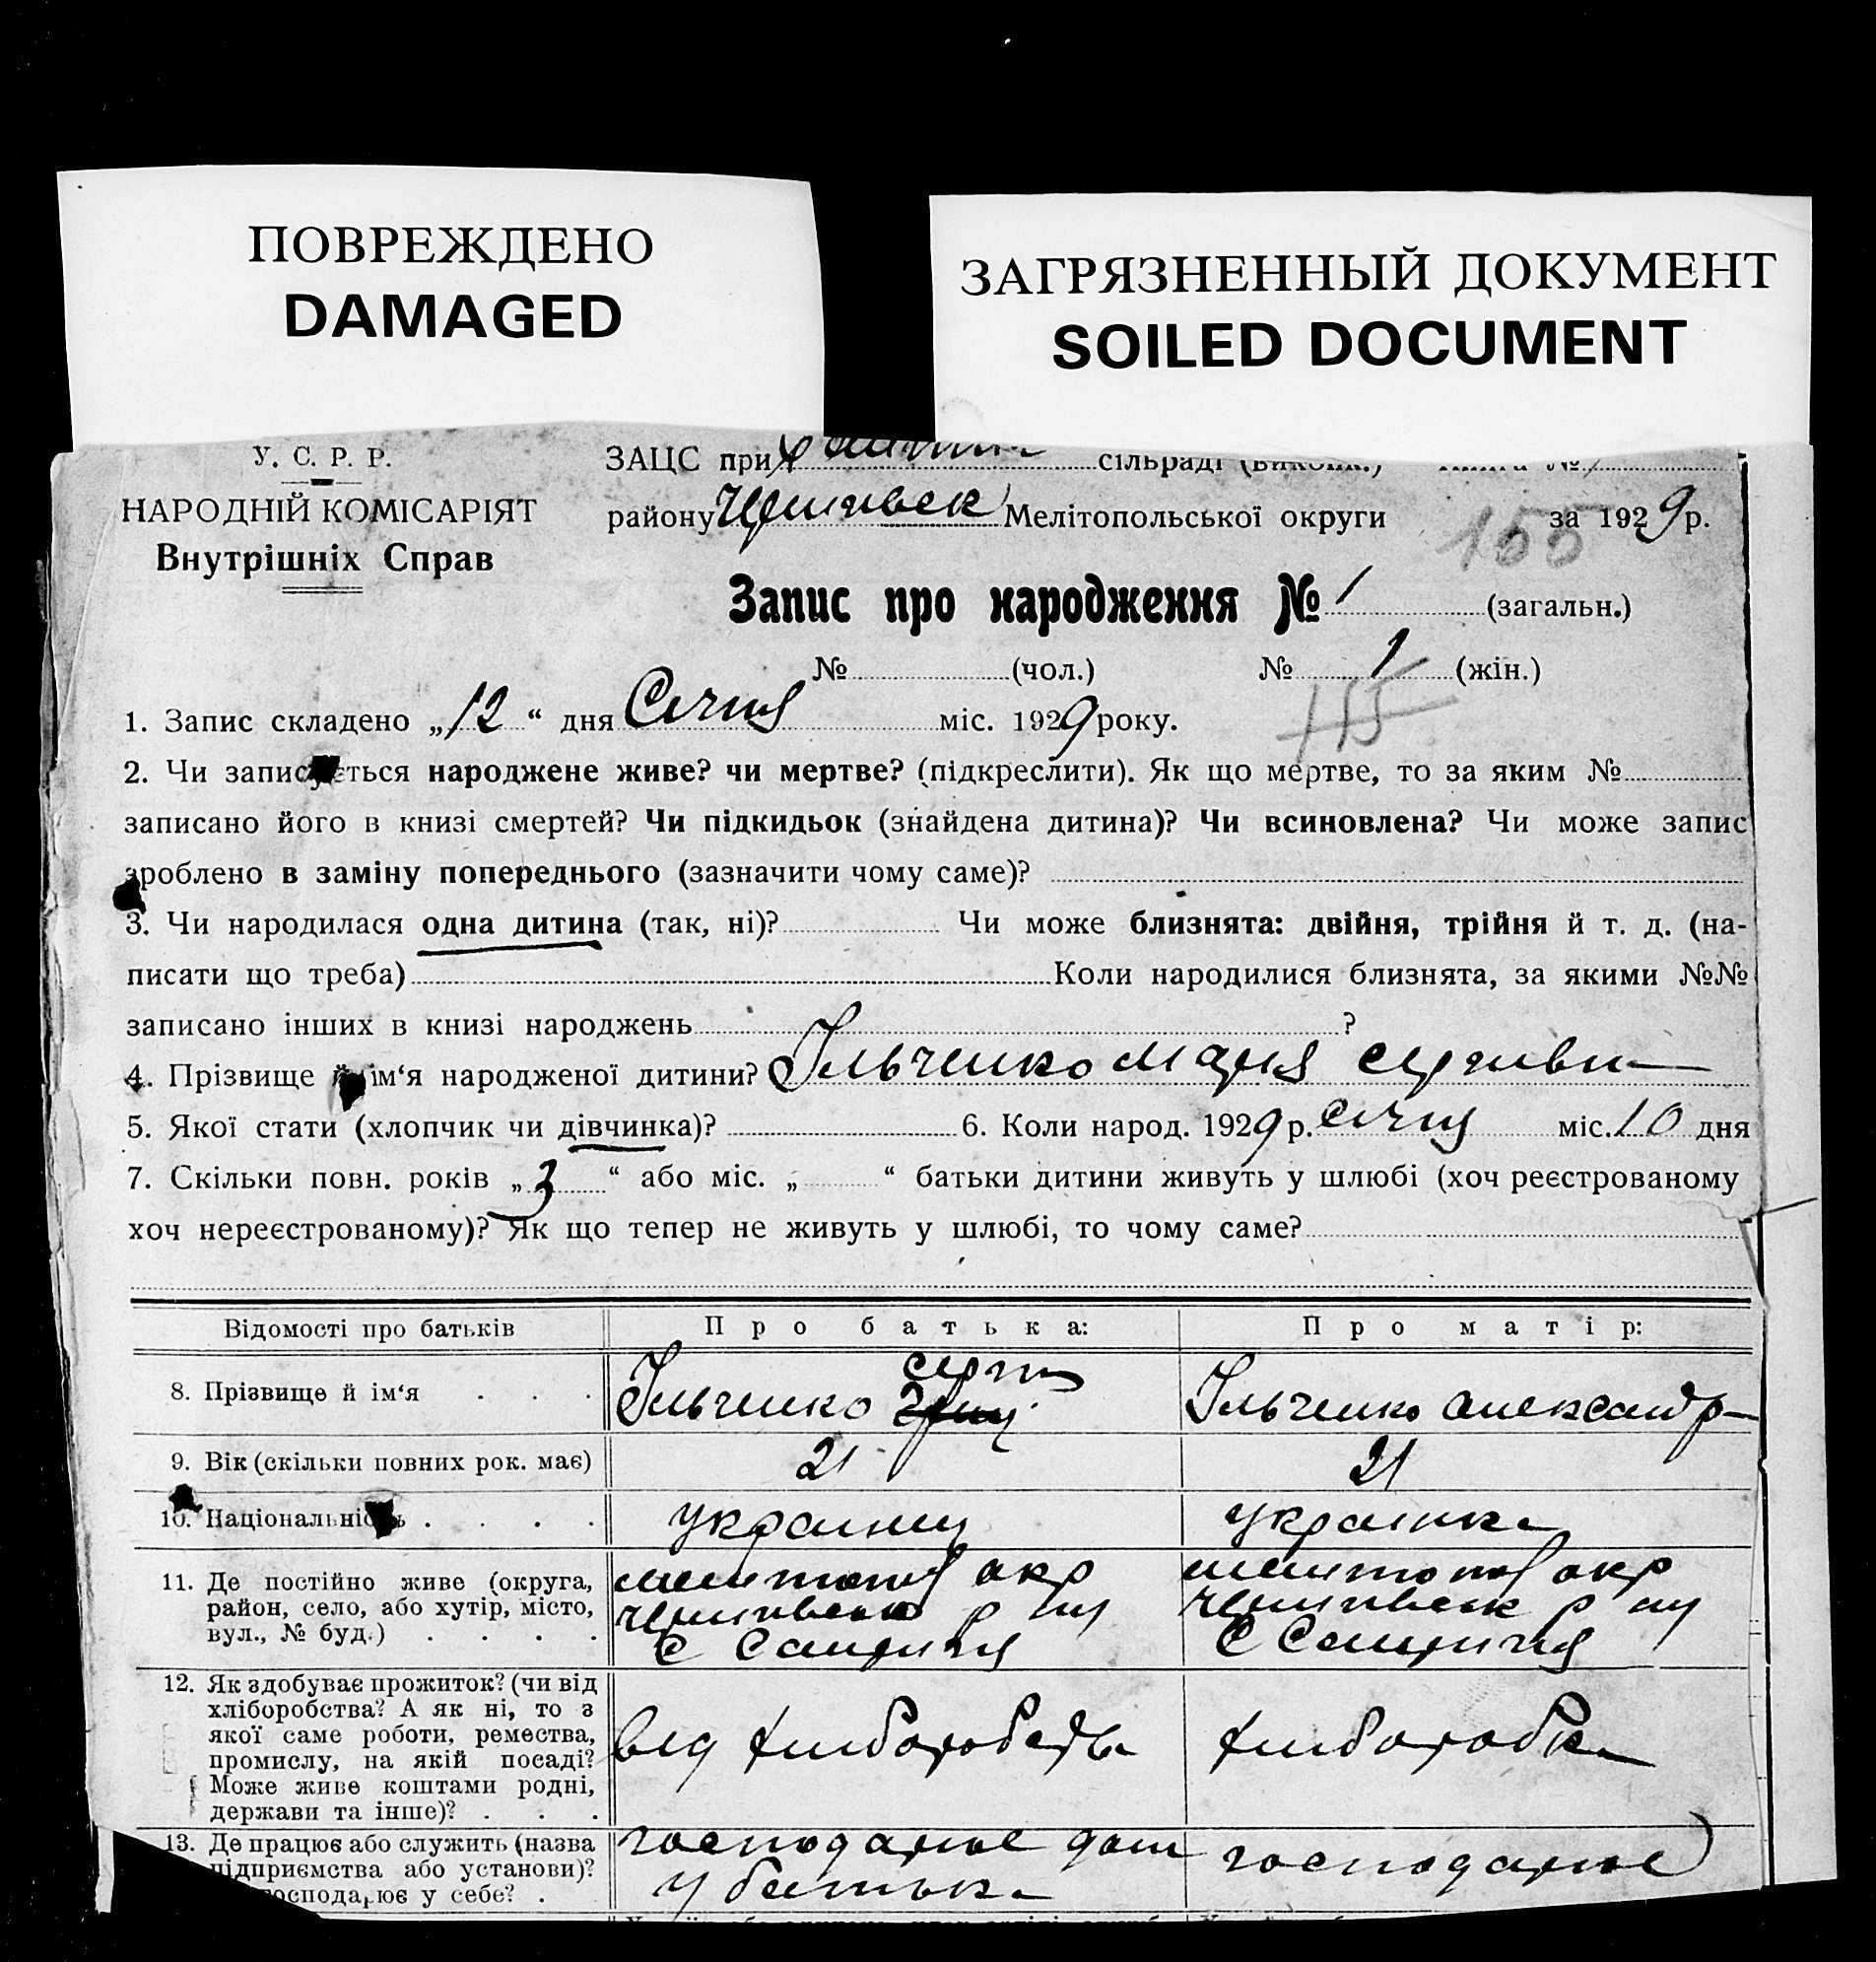 ПОВРЕЖДЕНО
DAMAGED
ЗАГРЯЗНЕННЫЙ ДОКУМЕНТ
SOILED DOCUMENT
У. С. Р. Р.
НАРОДНІЙ КОМІСАРІЯТ
Внутрішніх Справ
ЗАЦС при сільраді (виконк.) Книга №
району Мелітопольської округи за 1929 р.
155
Запис про народження № 1 (загальн.)
№ (чол.) № 1 (жін.)
155
1. Запис складено „12“ дня Січня міс. 1929 року.
2. Чи записується народжене живе? чи мертве? (підкреслити). Як що мертве, то за яким №
записано його в книзі смертей? Чи підкидьок (знайдена дитина)? Чи всиновлена? Чи може запис
зроблено в заміну попереднього (зазначити чому саме)?
3. Чи народилася одна дитина (так, ні)? Чи може близнята: двійня, трійня й т. д. (на-
писати що треба) Коли народилися близнята, за якими №№
записано інших в книзі народжень ?
4. Прізвище й ім‘я народженої дитини? Ільченко Мария
5. Якої стати (хлопчик чи дівчинка)? 6. Коли народ. 1929 р. Січня міс. 10 дня
7. Скільки повн. років „3“ або міс. „ “ батьки дитини живуть у шлюбі (хоч реєстрованому
хоч нереєстрованому)? Як що тепер не живуть у шлюбі, то чому саме?
Відомості про батьків Про батька: Про матір:
8. Прізвище й ім‘я Ільченко Ільченко Александр
9. Вік (скільки повних рок. має) 21 21
10. Національність украинец украинка
11. Де постійно живе (округа,
район, село, або хутір, місто,
вул., № буд.)
окр окр
12. Як здобуває прожиток? (чи від
хліборобства? А як ні, то з
якої саме роботи, ремества,
промислу, на якій посаді?
Може живе коштами родні,
держави та інше)?
від хліборобства хліборобка
13. Де працює або служить (назва
підприємства або установи)?
господарює у себе?
господарює
у батька
господарює